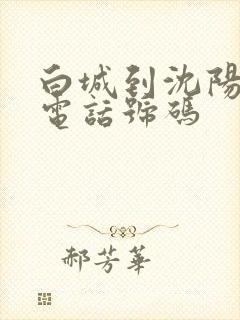 白城到沈陽
電話號碼
郝芳華